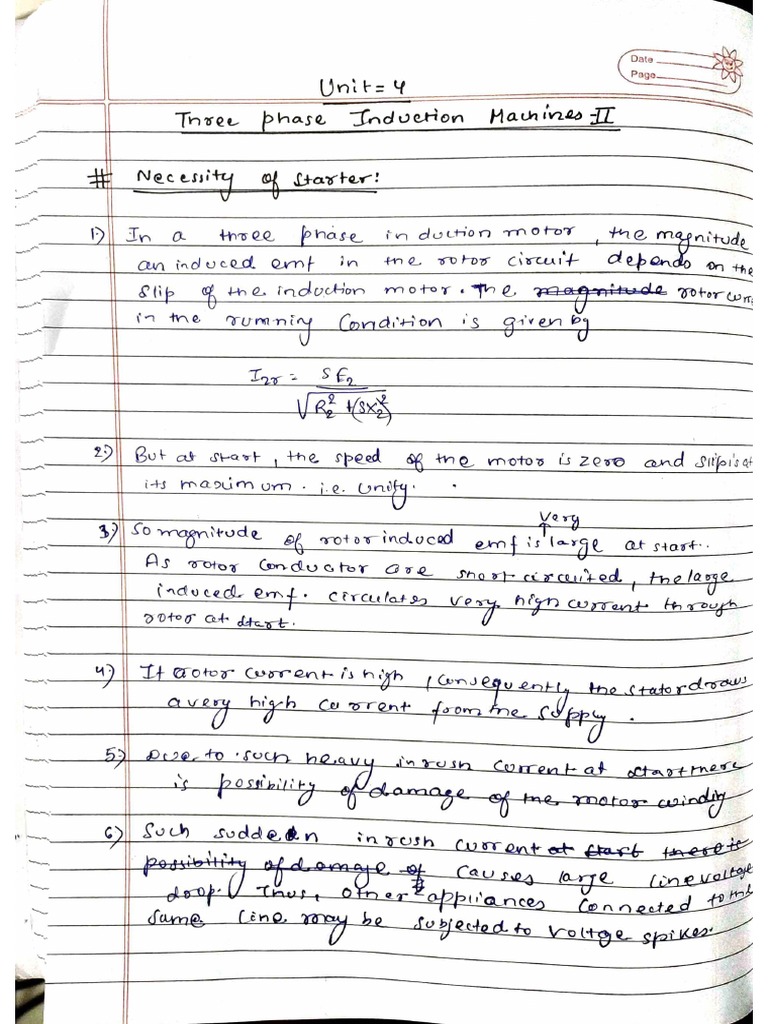 Date
Page
Unit = 4
Three phase Induction Machines-II
# Necessity of starter:
1) In a three phase induction motor, the magnitude
an induced emf in the rotor circuit depends on the
slip of the induction motor. The magnitude rotor curr
in the running Condition is given by
I2r = SE2 / √R2² + (SX2)²
2) But at start, the speed of the motor is zero and slip is at
its maximum. i.e. unity.
very
3) So magnitude of rotor induced emf is large at start..
As rotor conductor are short circuited, the large
induced emf. circulates very high current through
rotor at start.
4) If rotor current is high, consequently the stator draws
a very high current from the supply.
5) Due to such heavy inrush current at start there
is possibility of damage of the motor winding
6) Such sudden inrush current at start there is
possibility of damage of causes large line voltage
drop. Thus, other appliances connected to the
same line may be subjected to voltge spikes.